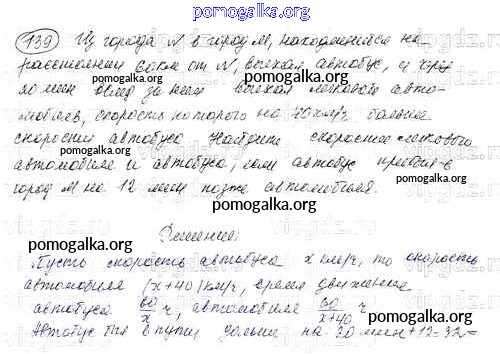 pomogalka.org
139 Из города N в город M, находящийся на
расстоянии 60 км от N, выехал автобус, а через
20 мин вслед за ним выехал легковой авто-
мобиль, скорость которого на 40 км/ч больше
скорости автобуса. Найдите скорости легкового
автомобиля и автобуса, если автобус прибыл в
город M на 12 мин позже автомобиля.
Решение:
Пусть скорость автобуса x км/ч, то скорость
автомобиля (x+40) км/ч, время движения
автобуса 60/x ч, автомобиля 60/x+40 ч
Автобус был в пути дольше на 20 мин+12=32=